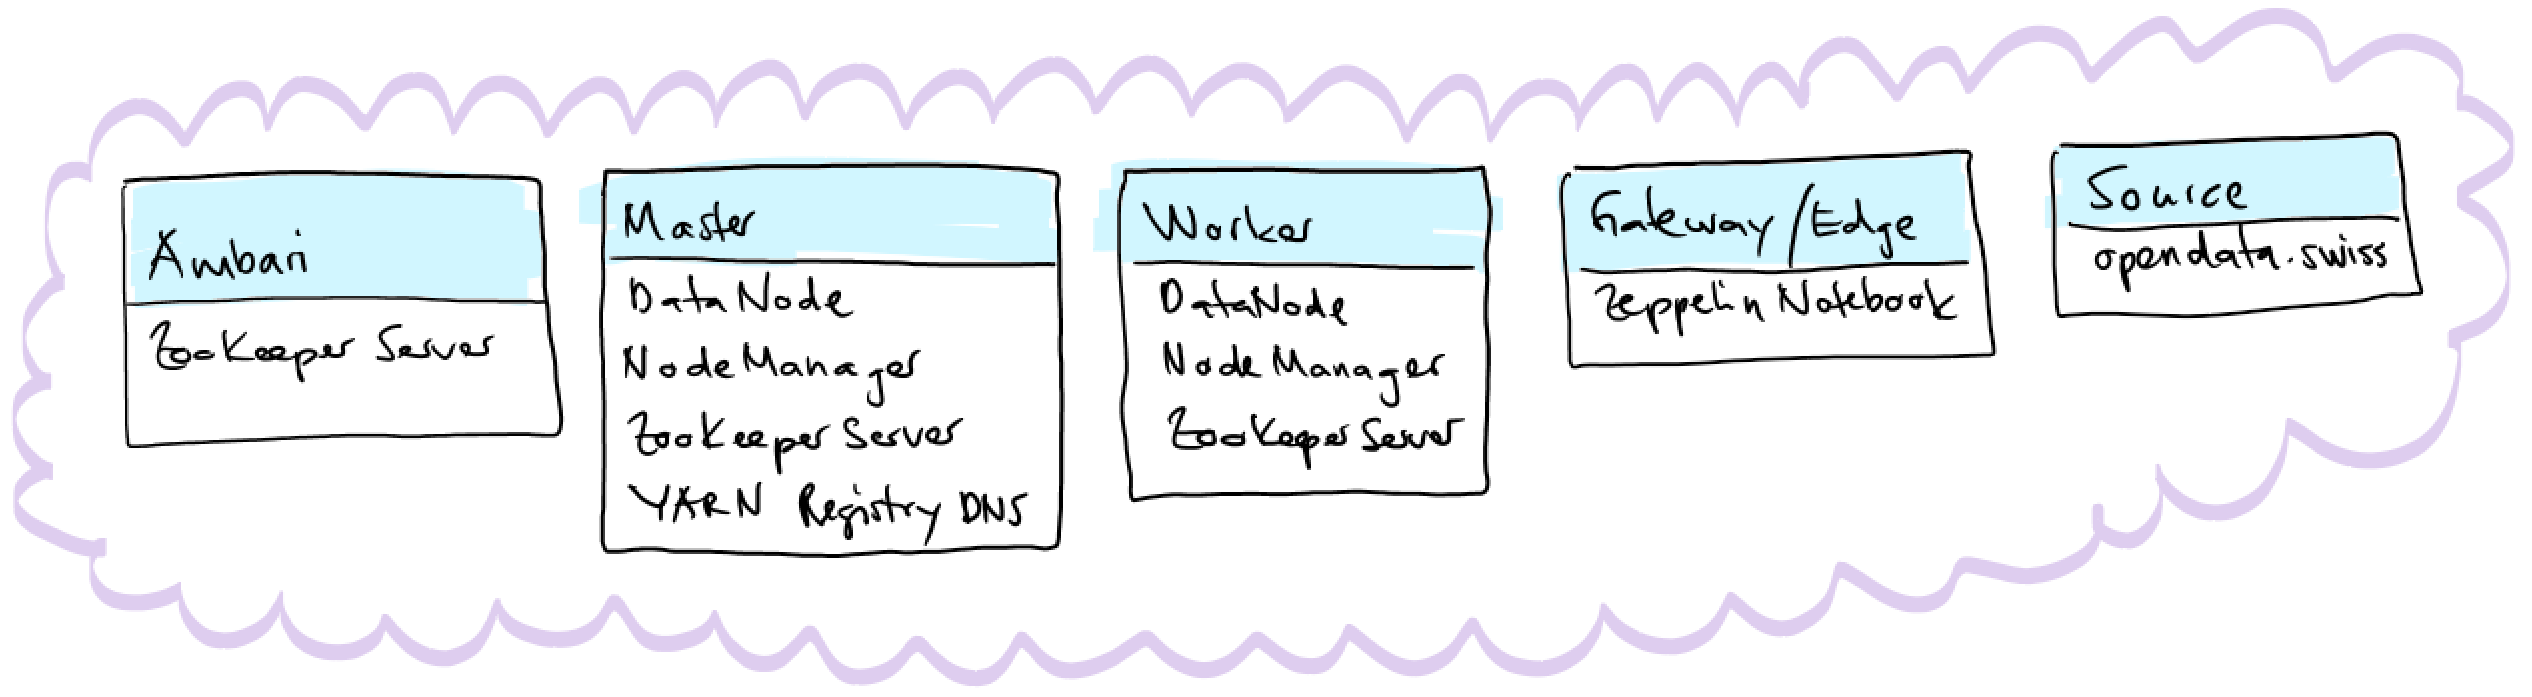 Ambari
ZooKeeper Server
Master
DataNode
NodeManager
ZooKeeper Server
YARN Registry DNS
Worker
DataNode
NodeManager
ZooKeeper Server
Gateway/Edge
Zeppelin Notebook
Source
opendata.swiss